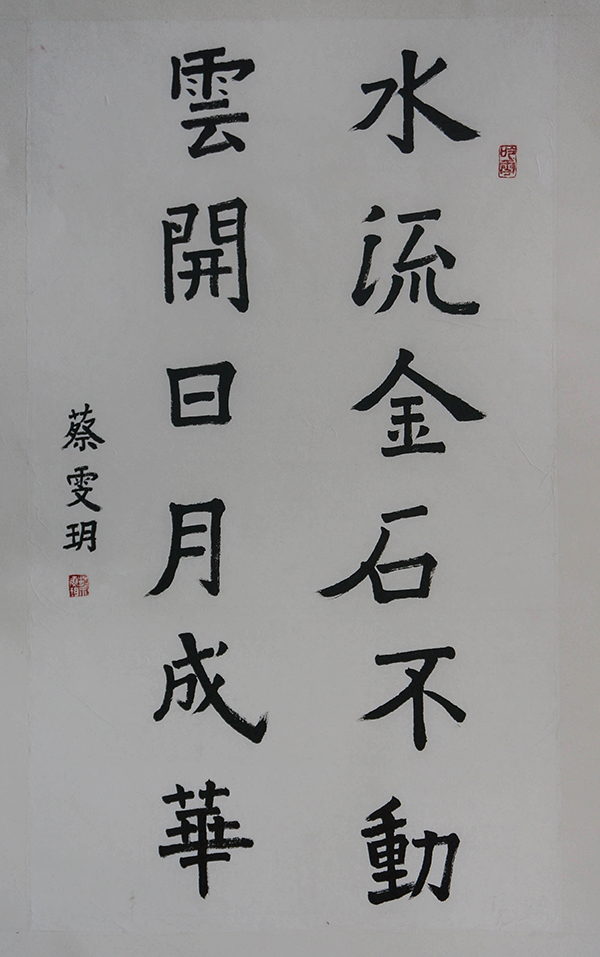 水流金石不動
雲開日月成華
蔡雯玥